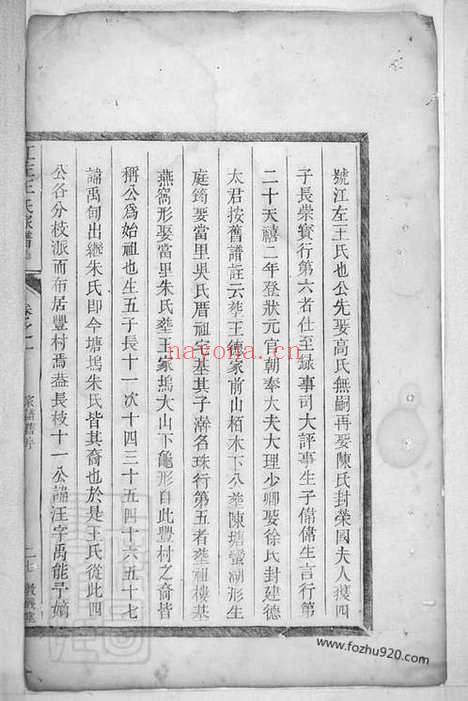 號江左王氏也公先娶高氏無嗣再娶陳氏封榮國夫人獲四
子長榮實行第六者仕至録事司大評事生子偹偹生言行第
二十天禧二年登狀元官朝奉大夫大理少卿娶徐氏封建德
太君按舊譜註云塟王傅家前山栢木下公塟陳塘螢湖形生
庭筠娶當里吳氏厝祖字基其子澣名珠行第五者塟祖樓基
燕窩形娶當里朱氏塟王家塢大山下龜形自此豐村之裔皆
稱公為始祖也生五子長十一次十四三十五四十六五十七
諭禹甸出繼朱氏即今塘塢朱氏皆其裔也於是王氏從此四
公各分枝派而布居豐村焉葢長枝十一公諭汪字禹能予嫡
江左王氏家譜
卷之一
nayona.cn
www.fozhu920.com